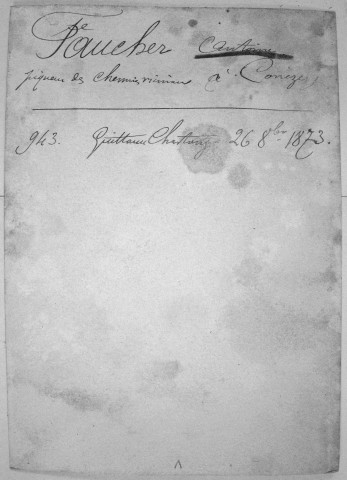 Faucher
piqueur des chemins vicinaux à Corrèze
943. Quittance 26 8bre 1873.